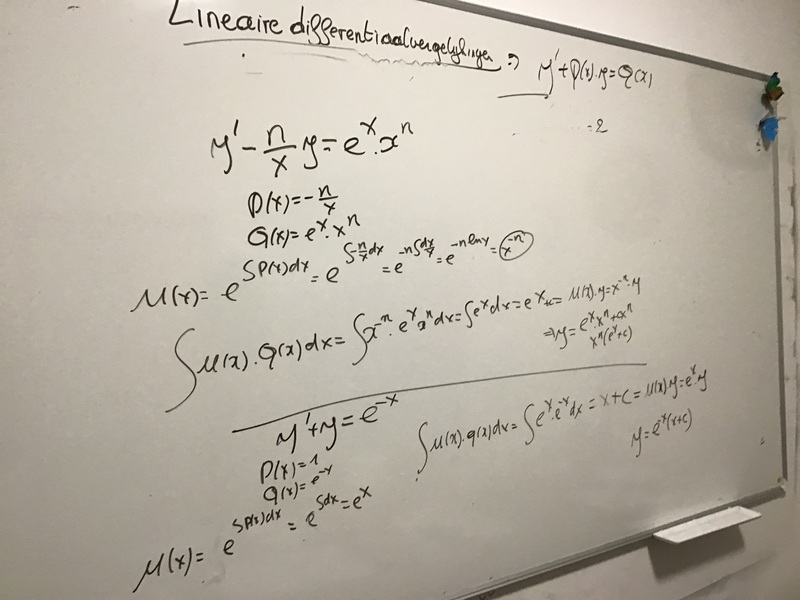 Lineaire differentiaalvergelijkingen => y' + P(x).y = Q(x)
= 2
y' - n/x y = e^x . x^n
P(x) = -n/x
Q(x) = e^x . x^n
μ(x) = e^∫P(x)dx = e^∫-n/x dx = e^-n∫dx/x = e^-n lnx = x^-n
∫μ(x).Q(x)dx = ∫x^-n . e^x x^n dx = ∫e^x dx = e^x + c = μ(x).y = x^-n . y
=> y = e^x x^n + cx^n
x^n(e^x+c)
y' + y = e^-x
P(x) = 1
Q(x) = e^-x
μ(x) = e^∫P(x)dx = e^∫dx = e^x
∫μ(x).q(x)dx = ∫e^x . e^-x dx = x + c = μ(x)y = e^x . y
y = e^-x(x+c)